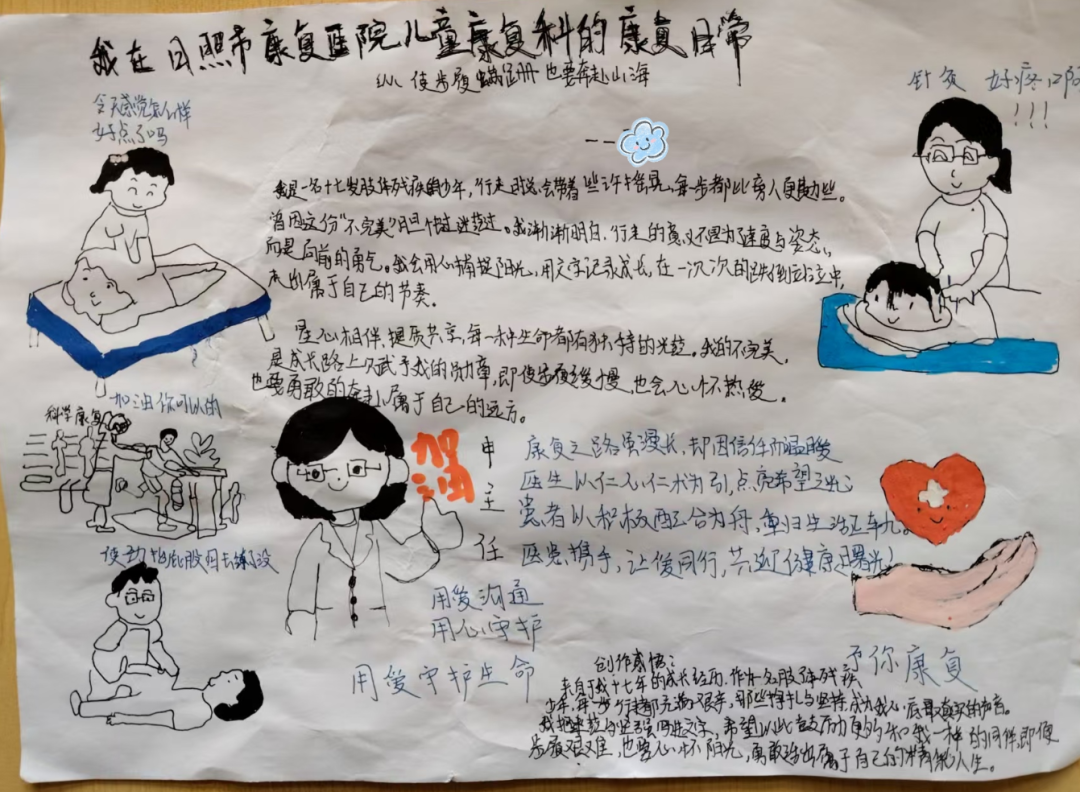 我在日照市康复医院儿童康复科的康复日常
纵使步履蹒跚 也要奔赴山海
今天感觉怎么样
好点了吗
针灸 好疼啊
!!!
我是一名十七岁肢体残疾的少年，行走时总会带着些许摇晃，每步都比旁人更费力些。
曾因这份“不完美”胆怯过迷茫过。我渐渐明白，行走的意义不因为速度与姿态，
而是向前的勇气。我会用心捕捉阳光，用文字记录成长，在一次次的跌倒站立中，
走出属于自己的节奏。
星心相伴，提质共享，每一种生命都有独特的光芒。我的不完美，
是成长路上赋予我的勋章，即使步履缓慢，也会心怀热爱，
也要勇敢的奔赴属于自己的远方。
加油你可以的
科学康复
加油
申主任
康复之路虽漫长，却因信任而温暖
医生以仁心仁术为引，点亮希望之光
患者以积极配合为舟，重归生活正轨。
医患携手，让爱同行，共迎健康曙光！
使劲 抬屁股 回去练了没
用爱沟通
用心守护
用爱守护生命
予你康复
创作感悟：
来自于我十七年的成长经历，作为一名肢体残疾
少年，每一步行走都充满艰辛，那些挣扎与坚持成为我心底最真实的声音。
我把迷茫与坚强写进文字，希望以此鼓励更多和我一样的同伴，即便
步履艰难，也要心怀阳光，勇敢踏出属于自己的精彩人生。